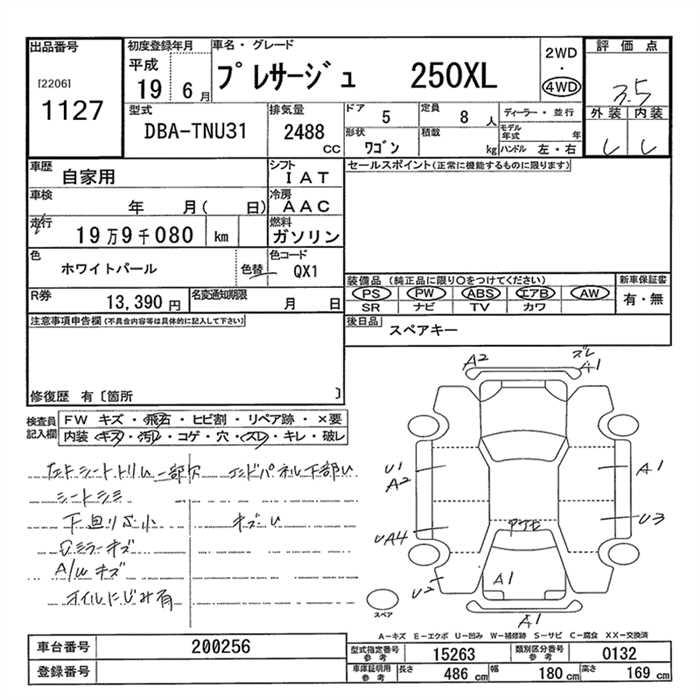 出品番号
[2206]
1127
初度登録年月
平成
19 6月
車名・グレード
プレサージュ 250XL
2WD
・
4WD
評価点
3.5
外装 内装
型式
DBA-TNU31
排気量
2488
CC
ドア 5
定員 8人
形状
ワゴン
積載 kg
ディーラー・並行
モデル年式 年
ハンドル 左・右
車歴 自家用
シフト
IAT
車検 年 月( 日)
冷房
AAC
走行
19万9千080 km
燃料
ガソリン
色
ホワイトパール
色替
色コード
QX1
R券 13,390円
名変通知期限 月 日
セールスポイント(正常に機能するものに限ります)
装備品(純正品に限り○をつけてください)
PS PW ABS エアB AW
SR ナビ TV カワ
新車保証書
有・無
後日品
スペアキー
注意事項申告欄(不具合内容等は具体的に記入して下さい)
修復歴 有〔箇所 〕
検査員記入欄
FW キズ・飛石・ヒビ割・リペア跡・×要
内装・キズ・汚れ・コゲ・穴・スレ・キレ・破レ
シートシミ
下廻りサビ小
ミラーキズ
A/W キズ
オイルにじみ有
A2
ズレ
A1
U1
A2
A1
UA4
U3
U2
A1
A1
スペア
A-キズ E-エクボ U-凹み W-補修跡 S-サビ C-腐食 XX-交換済
車台番号 200256
登録番号
型式指定番号参考 15263
類別区分番号参考 0132
車庫証明用参考 長さ 486 cm 幅 180 cm 高さ 169 cm